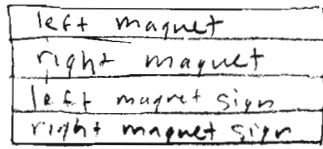 left magnet
right magnet
left magnet sign
right magnet sign